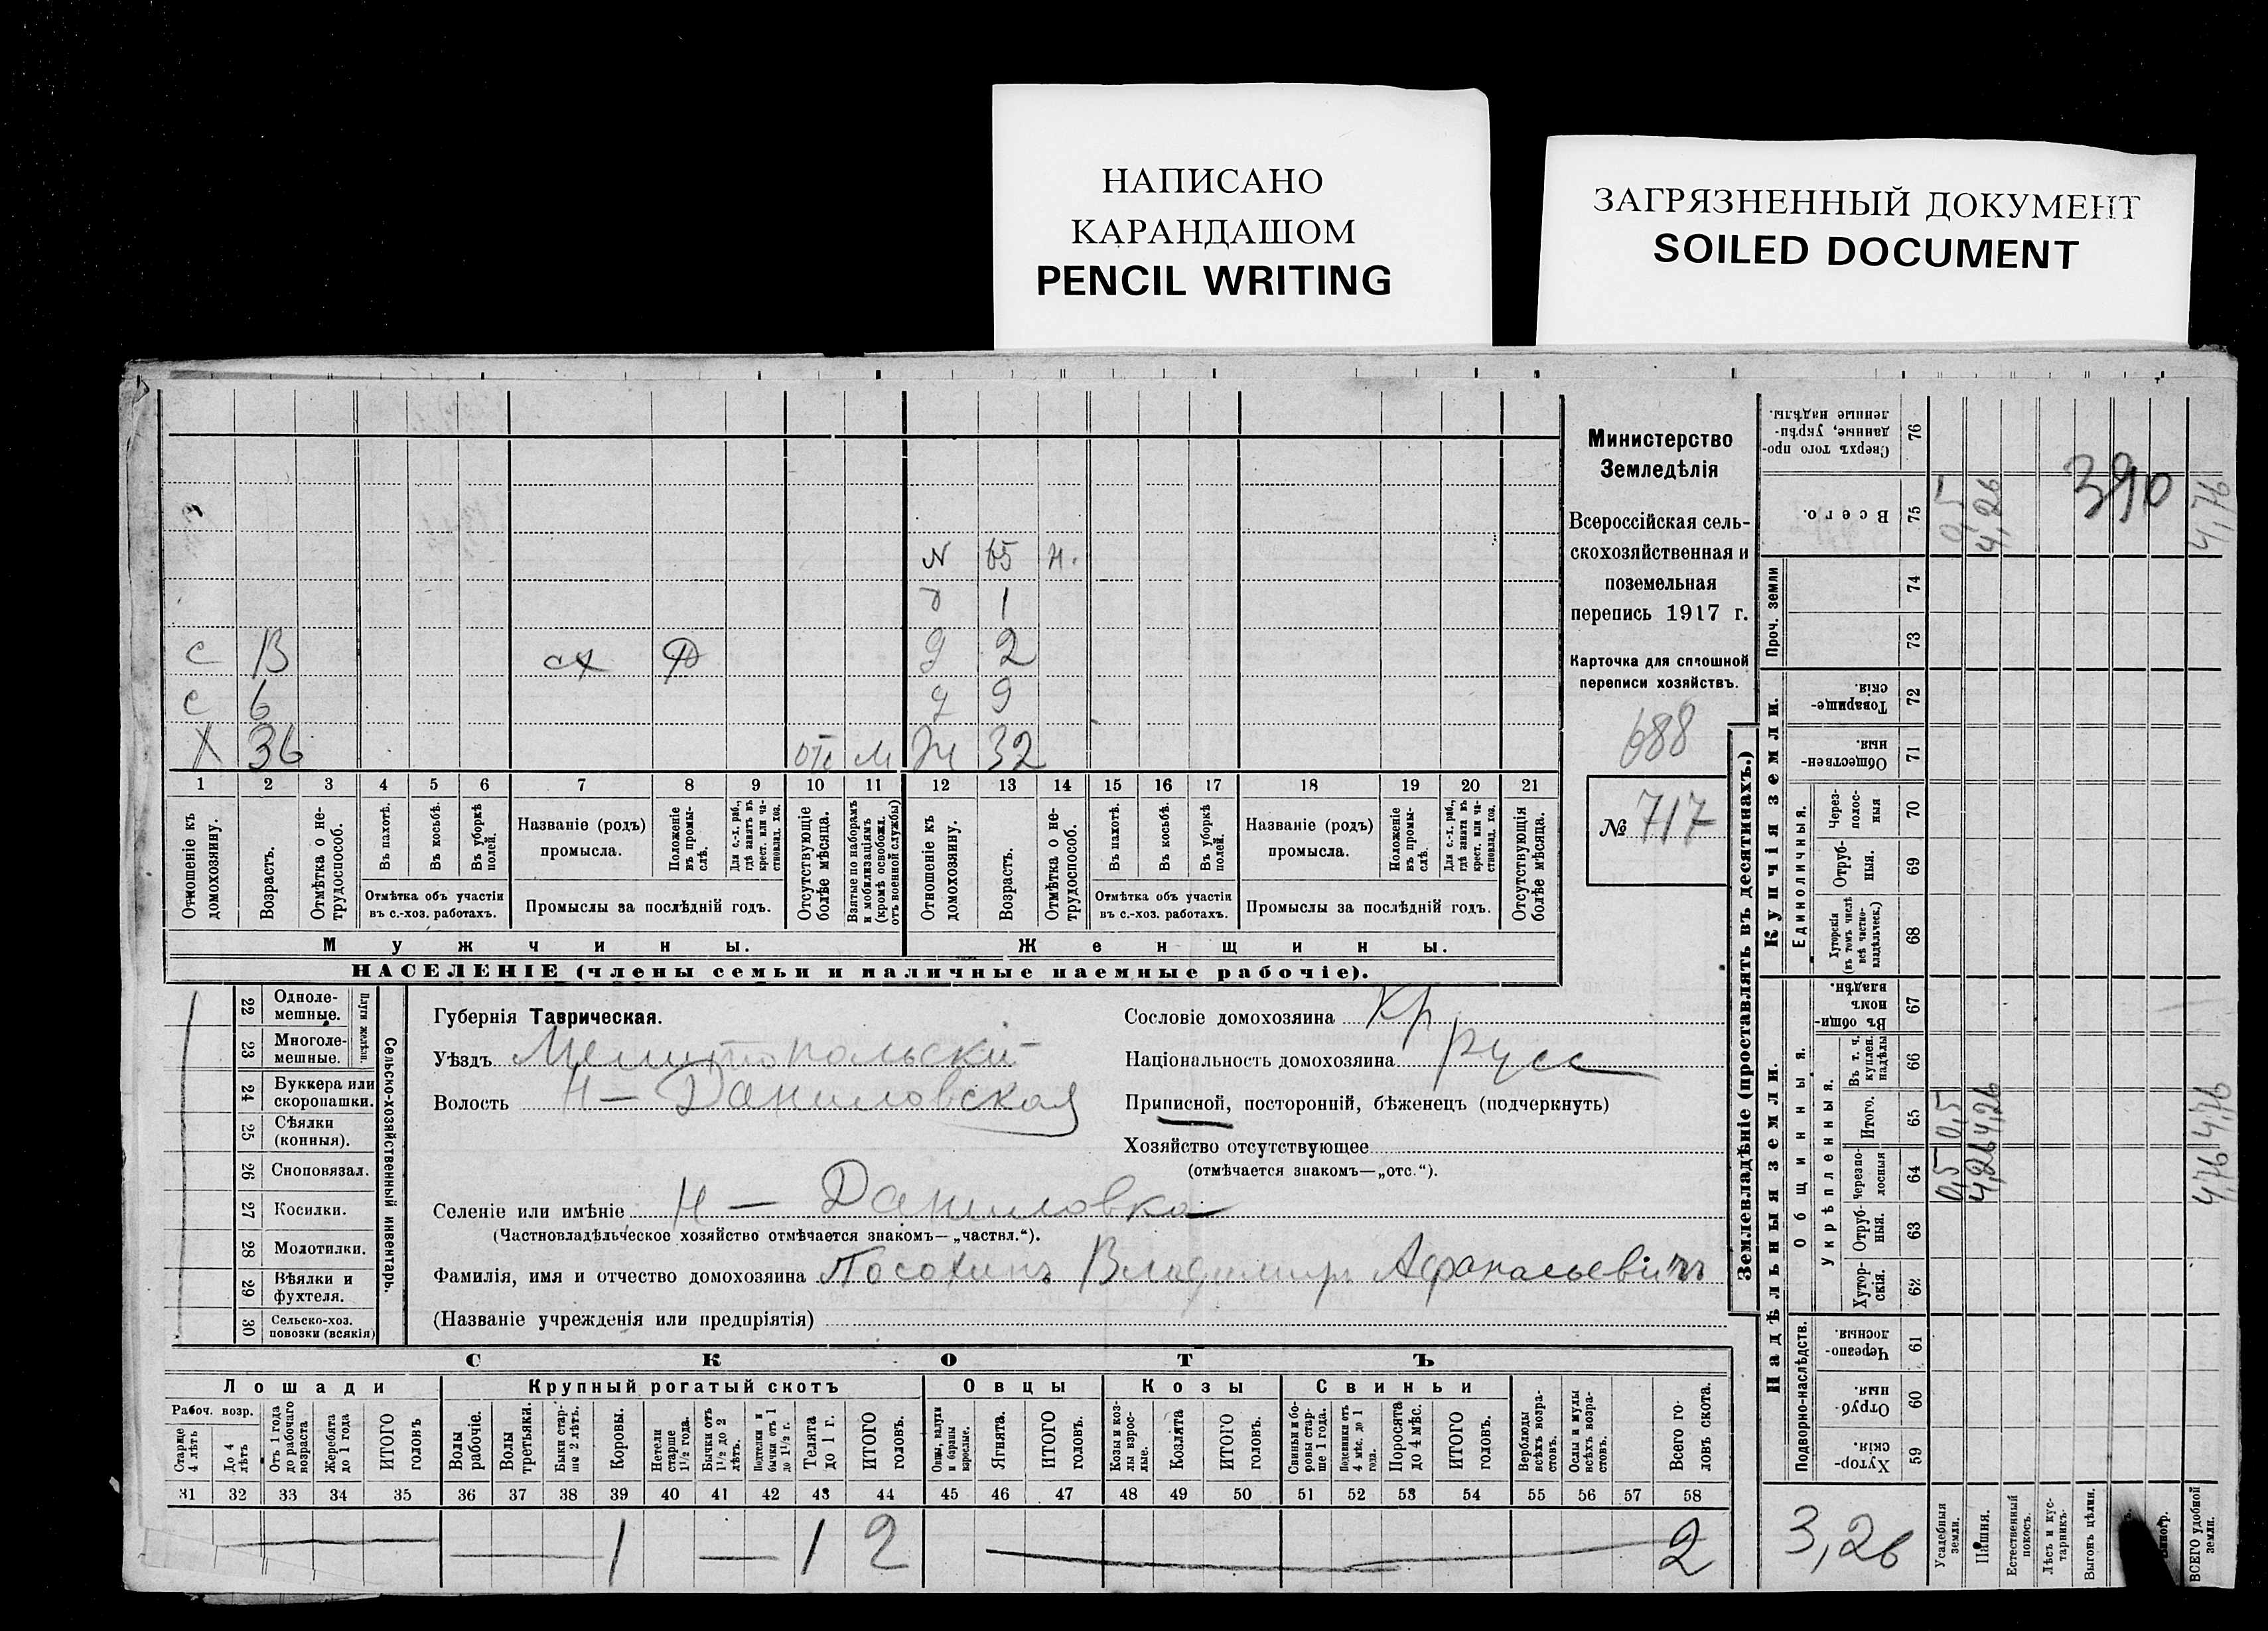 НАПИСАНО
КАРАНДАШОМ
PENCIL WRITING
ЗАГРЯЗНЕННЫЙ ДОКУМЕНТ
SOILED DOCUMENT
N 65 н.
д 1
с 13 сх д 2
с 6 д 9
Х 36 отс м Ж 32
1 2 3 4 5 6 7 8 9 10 11 12 13 14 15 16 17 18 19 20 21
Отношеніе къ домохозяину.
Возрастъ.
Отмѣтка о не-трудоспособ.
Въ пахотѣ.
Въ косьбѣ.
Въ уборкѣ полей.
Отмѣтка объ участіи въ с.-хоз. работахъ.
Названіе (родъ) промысла.
Положеніе въ промы-слѣ.
Для с.-х. раб., гдѣ занятъ въ крест. или ча-стновлад. хоз.
Промыслы за послѣдній годъ.
Отсутствующіе болѣе мѣсяца.
Взятые по наборамъ и мобилизаціямъ (кромѣ освобожд. отъ военной службы)
Отношеніе къ домохозяину.
Возрастъ.
Отмѣтка о не-трудоспособ.
Въ пахотѣ.
Въ косьбѣ.
Въ уборкѣ полей.
Отмѣтка объ участіи въ с.-хоз. работахъ.
Названіе (родъ) промысла.
Положеніе въ промы-слѣ.
Для с.-х. раб., гдѣ занята въ крест. или ча-стновлад. хоз.
Промыслы за послѣдній годъ.
Отсутствующія болѣе мѣсяца.
Мужчины. Женщины.
НАСЕЛЕНІЕ (члены семьи и наличные наемные рабочіе).
Министерство
Земледѣлія
Всероссійская сель-
скохозяйственная и
поземельная
перепись 1917 г.
Карточка для сплошной
переписи хозяйствъ.
688
№ 717
22 Одноле-мешные.
23 Многоле-мешные.
Плуги желѣзн.
24 Буккера или скоропашки.
25 Сѣялки (конныя).
26 Сноповязал.
27 Косилки.
28 Молотилки.
29 Вѣялки и фухтеля.
30 Сельско-хоз. повозки (всякія)
Сельско-хозяйственный инвентарь.
Губернія Таврическая.
Уѣздъ Мелитопольский
Волость Н-Даниловская
Селеніе или имѣніе Н - Даниловка
(Частновладѣльческое хозяйство отмѣчается знакомъ—„частвл.“).
Фамилія, имя и отчество домохозяина Посохинъ Владимиръ Афанасьевичъ
(Названіе учрежденія или предпріятія)
Сословіе домохозяина Кр
Національность домохозяина русс
Приписной, посторонній, бѣженецъ (подчеркнуть)
Хозяйство отсутствующее
(отмѣчается знакомъ—„отс.“).
СКОТЪ
Лошади Крупный рогатый скотъ Овцы Козы Свиньи
Рабоч. возр.
Старше 4 лѣтъ
До 4 лѣтъ
Отъ 1 года до рабочаго возраста
Жеребята до 1 года
ИТОГО головъ
Волы рабочіе.
Волы третьяки.
Быки стар-ше 2 лѣтъ.
Коровы.
Нетели старше 1½ года.
Бычки отъ 1½ до 2 лѣтъ.
Подтелки и бычки отъ 1 до 1½ г.
Телята до 1 г.
ИТОГО головъ.
Овцы, валухи и бараны взрослые.
Ягнята.
ИТОГО головъ.
Козы и коз-лы взрос-лые.
Козлята
ИТОГО головъ.
Свиньи и бо-ровы стар-ше 1 года.
Подсвинки отъ 4 мѣс. до 1 года.
Поросята до 4 мѣс.
ИТОГО головъ.
Верблюды всѣхъ возра-стовъ.
Ослы и мулы всѣхъ возра-стовъ.
Всего го-ловъ скота.
31 32 33 34 35 36 37 38 39 40 41 42 43 44 45 46 47 48 49 50 51 52 53 54 55 56 57 58
1 1 2 2
Землевладѣніе (проставлять въ десятинахъ.)
Купчія земли.
Надѣльныя земли.
Сверхъ того про-данные, укрѣп-ленные надѣлы. 76
Всего. 75 0,5 4,26 4,76
390
Проч. земли 74 73
Товарище-скія. 72
Обществен-ныя. 71
Единоличныя.
Через-полос-ныя 70
Отруб-ныя. 69
Хуторскія (въ томъ числѣ всѣ частно-владѣльческ.) 68
Общинныя.
Въ общи-номъ владѣн. 67
Укрѣпленныя.
Въ т. ч. куплен. надѣлы 66
Итого. 65 0,5 4,26 4,76
Черезпо-лосныя 64 0,5 4,26 4,76
Отруб-ныя. 63
Хутор-скія. 62
Подворно-наслѣдств.
Черезпо-лосныя. 61
Отруб-ныя. 60
Хутор-скія. 59
3,26
Усадебныя земли.
Пашня.
Естественный покосъ.
Лѣсъ и кус-тарникъ.
Выгонъ цѣлин.
ВСЕГО удобной земли.